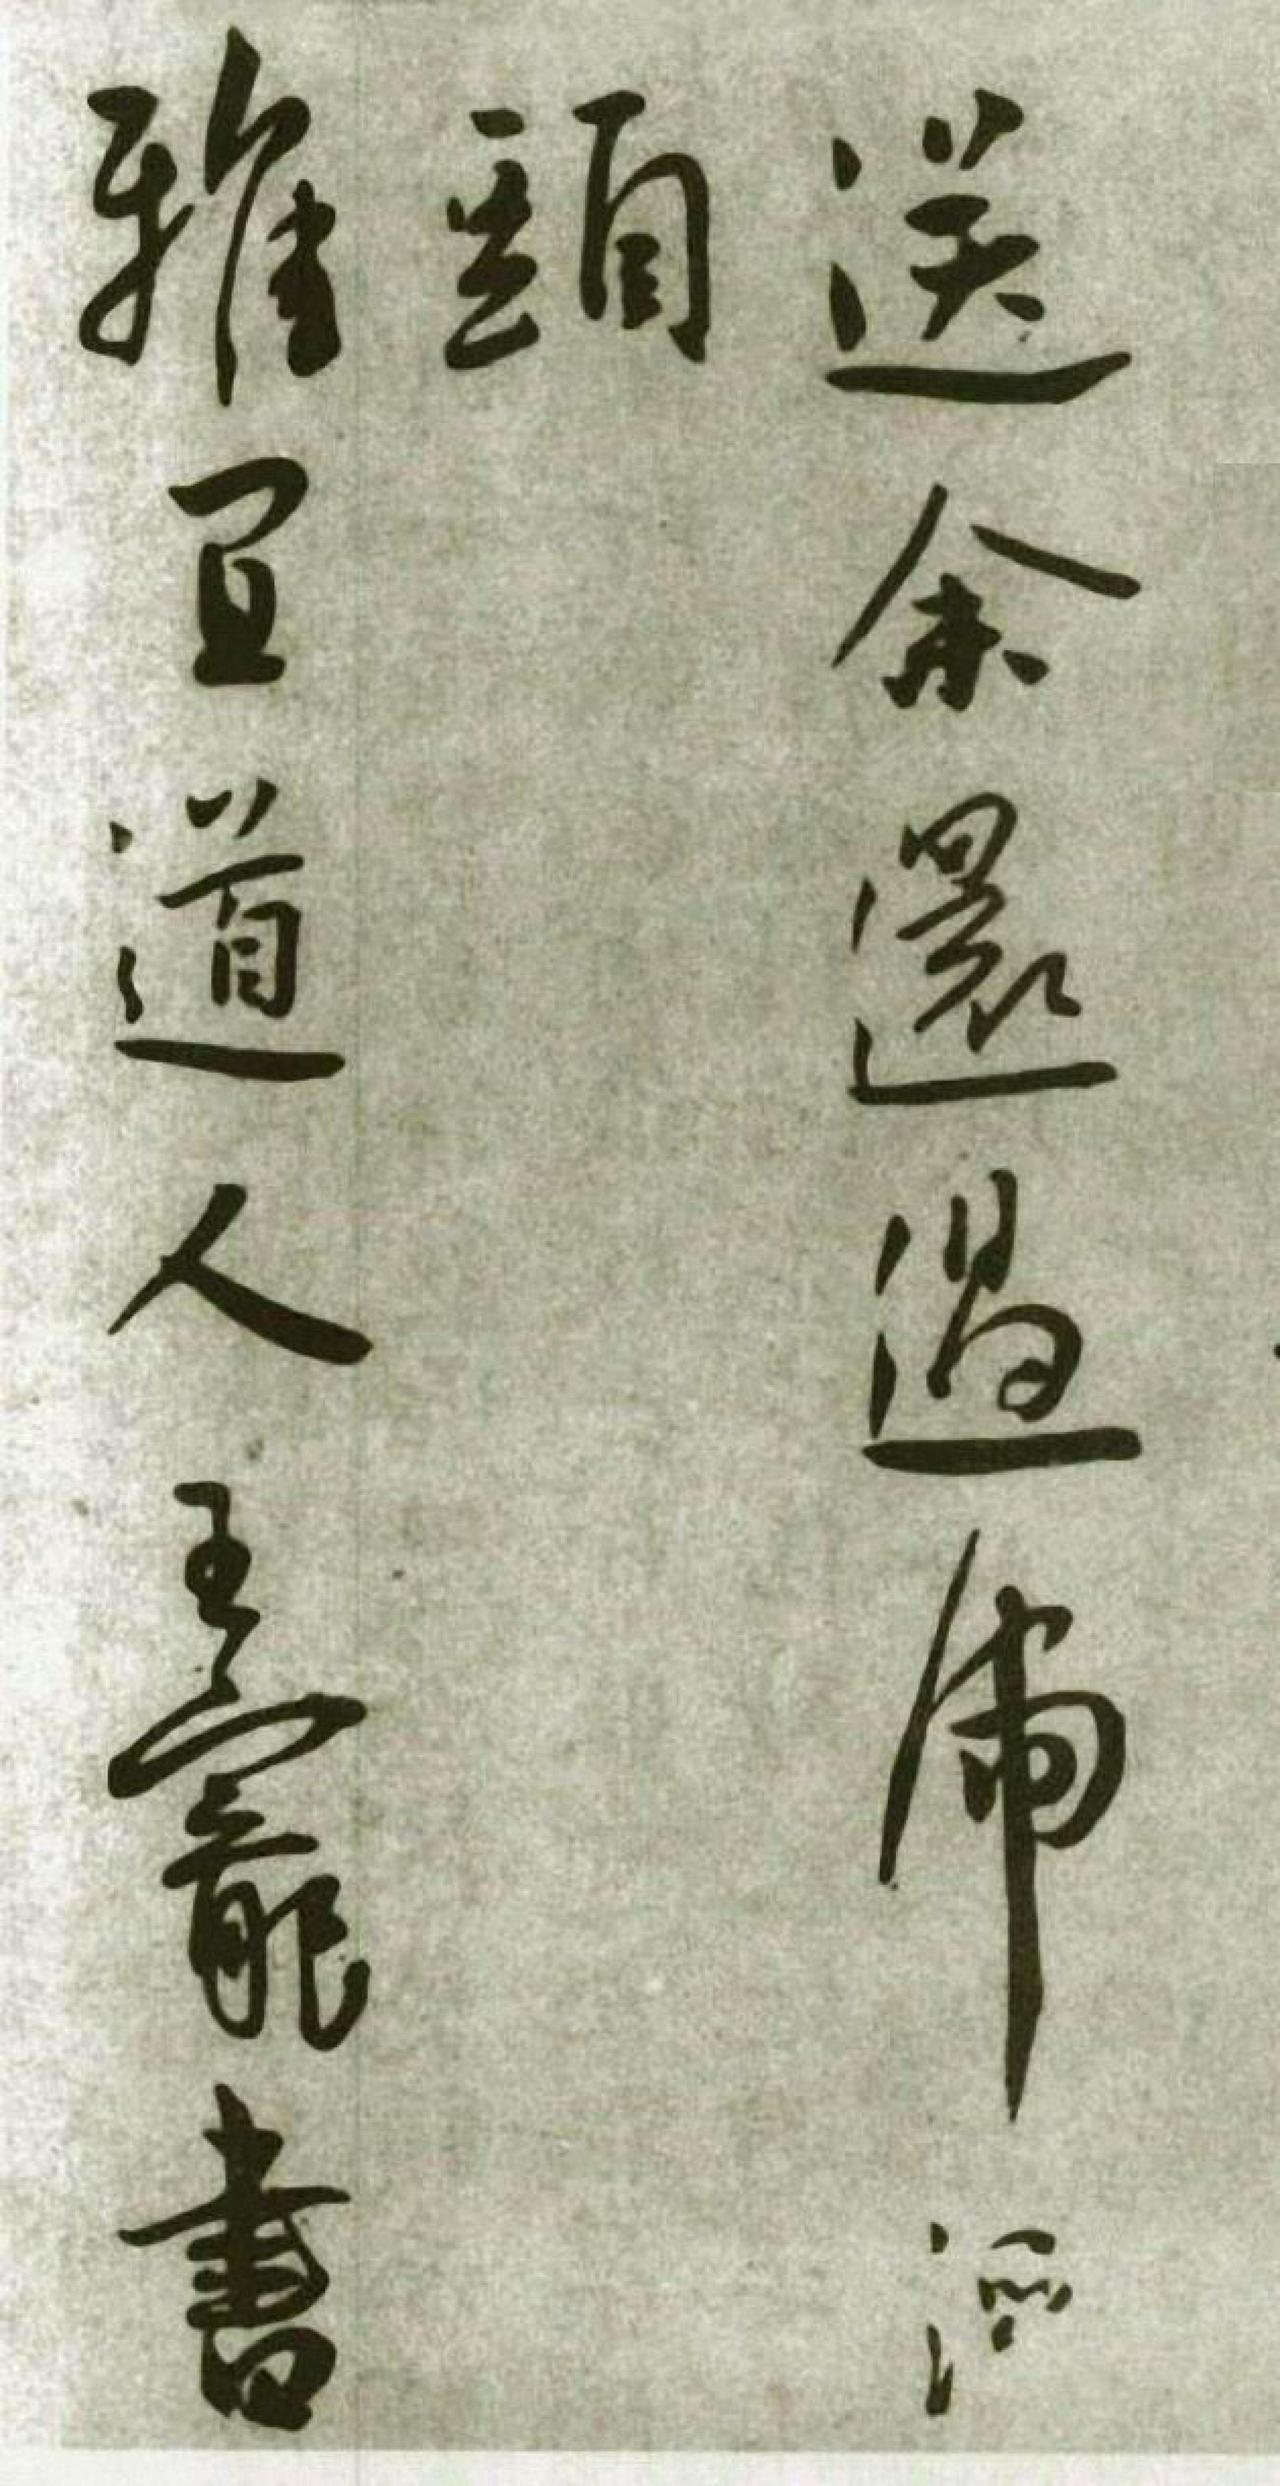 送余還過虎溪
頭
雅宜道人王寵書